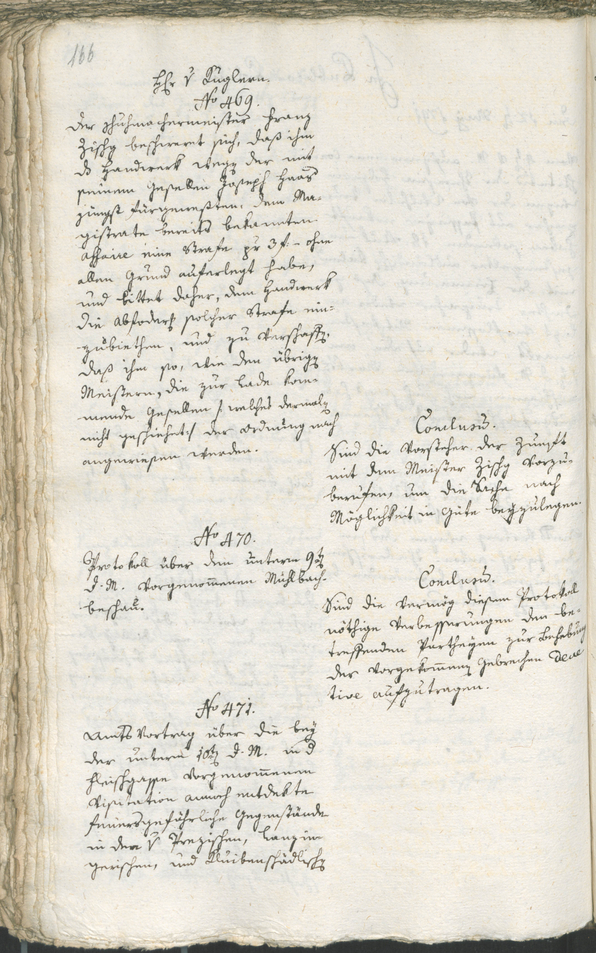 166
Hr v Kuglern.
No 469.
Der Schuhmachermeister Franz
Zischg beschweret sich, daß ihm
das Handwerk wegen der mit
seinem Gesellen Joseph Haas
jüngst fürgewesten, dem Ma-
gistrate bereits bekannten
Affaire eine Strafe pr 3 f – ohne
allen Grund auferlegt habe,
und bittet daher, dem Handwerk
die Abfoder solcher Strafe ein-
zubiethen, und zu verschaffen,
daß ihm so, wie den übrigen
Meistern, die zur Lade kom-
mende Gesellen / welches dermalen
nicht geschiehet / der Ordnung nach
angewiesen werden.
Conclusum.
Sind die Vorsteher der Zunft
mit dem Meister Zischg vorzu-
berufen, um die Sache nach
Möglichkeit in Güte beyzulegen.
No 470.
Protokoll über den unterm 9ten
d. M. vorgenommenen Mühlbach-
beschau.
Conclusum.
Sind die vermög diesem Protokoll
nöthige Verbesserungen den be-
treffenden Partheyen zur Behebung
der vorgekommenen Gebrechen decre
tive aufzutragen.
No 471.
Amts Vortrag über die bey
der unterm 10ten d. M. in der
Fleischgasse vorgenommenen
Visitation annoch entdekte
feuersgefährliche Gegenstände
in den v
gerischen, und